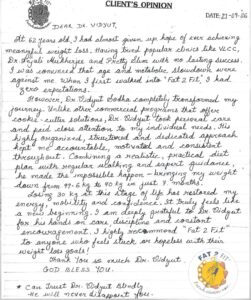 CLIENT'S OPINION
DEAR DR. VIDYUT,
At 62 years old, I had almost given up hope of ever achieving
meaningful weight loss. Having tried popular clinics like VLCC,
Dr. Anjali Mukherjee and Pretty Slim with no lasting success.
I was convinced that age and metabolic slowdown were
against me. When I first walked into 'Fat 2 Fit', I had
zero expectations.
However, Dr. Vidyut Godha completely transformed my
journey. Unlike other commercial programs that offer
cookie-cutter solutions, Dr. Vidyut took personal care
and paid close attention to my individual needs. His
highly organised, structured and dedicated approach
kept me accountable, motivated and consistent
throughout. Combining a realistic, practical, diet
plan with regular walking and expert guidance,
he made the impossible happen - bringing my weight
down from kg to kg in just months.
Losing 30 kg at this stage of life has restored my
energy, mobility and confidence. It truly feels like
a new beginning. I am deeply grateful to Dr. Vidyut
for his hands on care, discipline and constant
encouragement. I highly recommend "Fat 2 Fit"
to anyone who feels stuck or hopeless with their
weight loss goals!
Thank you so much Dr. Vidyut
GOD BLESS YOU.
* Can Trust Dr. Vidyut Blindly
He will never disappoint you.
FAT 2 FIT